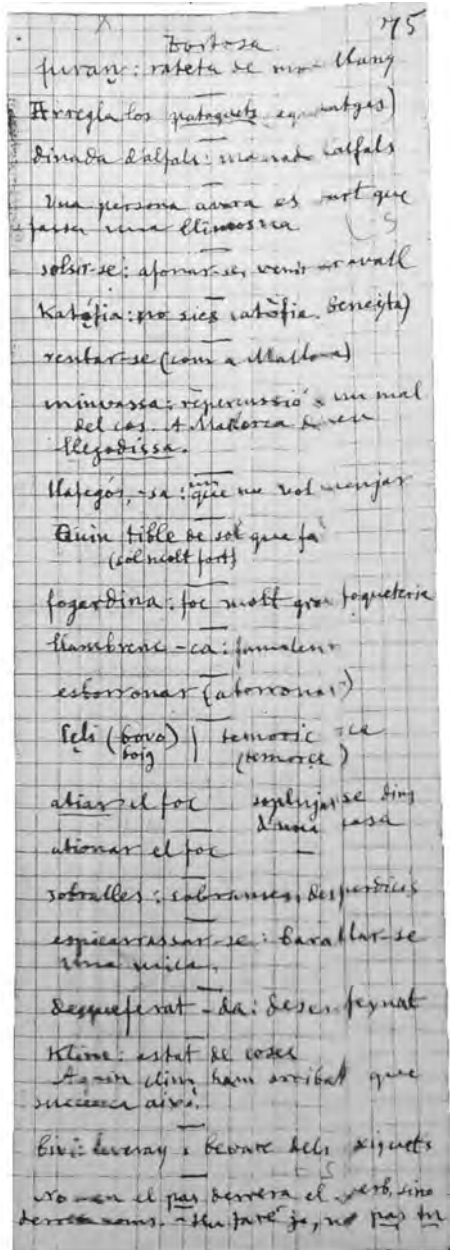 75
Tortosa
furany: rateta de mon llung
Arregla los pataquets, equipatges)
dinada d'alfals: manada d'alfals
Una persona avara es rart que
fasse una llimosna
solsir-se: afonar-se, venir avall
Katófia: no sies catòfia. Beneyta)
rentar-se (com a Mallorca)
minvassa: repercussió un mal
del cos. A Mallorca diuen
llegodissa.
llafegós, -sa: que no vol menjar
Quin tible de sol que fa
(sol molt fort)
fogardina: foc molt gros foqueteria
llambrenc -ca: famolenc
esborronar (aborronar)
Leli (bovo) | temoric -ca
boig (temorec)
atiar el foc soplujar-se dins
d'una casa
ationar el foc —
sobralles: sobranses, desperdicis
espicarrassar-se: barallar-se
una mica.
desqueferat -da: desenfeynat
Klime: estat de coses
A quin clim ham arribat que
succeeca això.
bivi: beuratge, beure dels xiquets
No en el pas derrera el verb, sino
derrera noms. -Hu faré jo, no pas tu